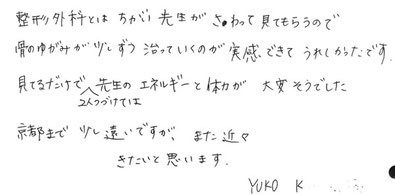 整形外科とは ちがい 先生が さわって 見てもらうので
骨のゆがみが 少しずつ 治っていくのが 実感できて うれしかったです.
見てるだけで 先生の エネルギーと体力が 大変そうでした
2人つづけては
京都まで 少し遠いですが、また近々
きたいと思います.
YUKO K